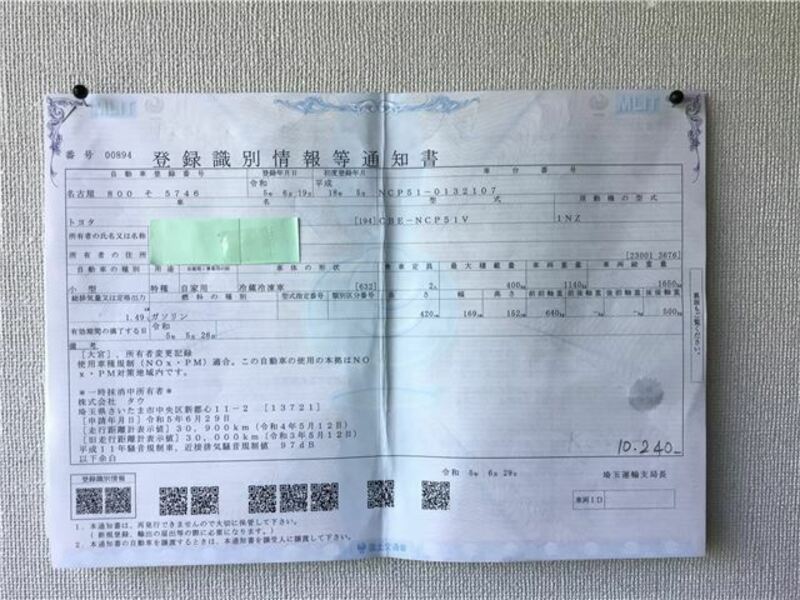 MLIT
MLIT
番号 00894 登録識別情報等通知書
自動車登録番号 登録年月日 初度登録年月 車台番号
名古屋 800 そ 5746 令和 5年 6月 19日 平成 18年 5月 NCP51-0132107
車名 型式 原動機の型式
トヨタ [194] CBE-NCP51V 1NZ
所有者の氏名又は名称
所有者の住所 [23001 3676]
自動車の種別 用途 車体の形状 乗車定員 最大積載量 車両重量 車両総重量
小型 特種 自家用 冷蔵冷凍車 [632] 2人 400kg 1140kg 1650kg
総排気量又は定格出力 燃料の種類 型式指定番号 類別区分番号 長さ 幅 高さ 前前軸重 前後軸重 後前軸重 後後軸重
1.49 ガソリン 420cm 169cm 152cm 640kg -kg -kg 500kg
有効期間の満了する日 令和 5年 5月 26日
備考
[大宮]，所有者変更記録
使用車種規制（NOx・PM）適合，この自動車の使用の本拠はNO
x・PM対策地域内です。
＊一時抹消中所有者＊
株式会社 タウ
埼玉県さいたま市中央区新都心11-2 [13721]
[申請年月日] 令和5年6月29日
[走行距離計表示値] 30,900km（令和4年5月12日）
[旧走行距離計表示値] 30,000km（令和3年5月12日）
平成11年騒音規制車，近接排気騒音規制値 97dB
以下余白
裏面もご覧ください。
10.240-
令和 5年 6月 29日 埼玉運輸支局長
登録識別情報
車両ID
1．本通知書は，再発行できませんので大切に保管して下さい。
（新規登録，輸出の届出等の際に必要になります。）
2．本通知書の自動車を譲渡するときは，本通知書を譲受人に譲渡して下さい。
国土交通省